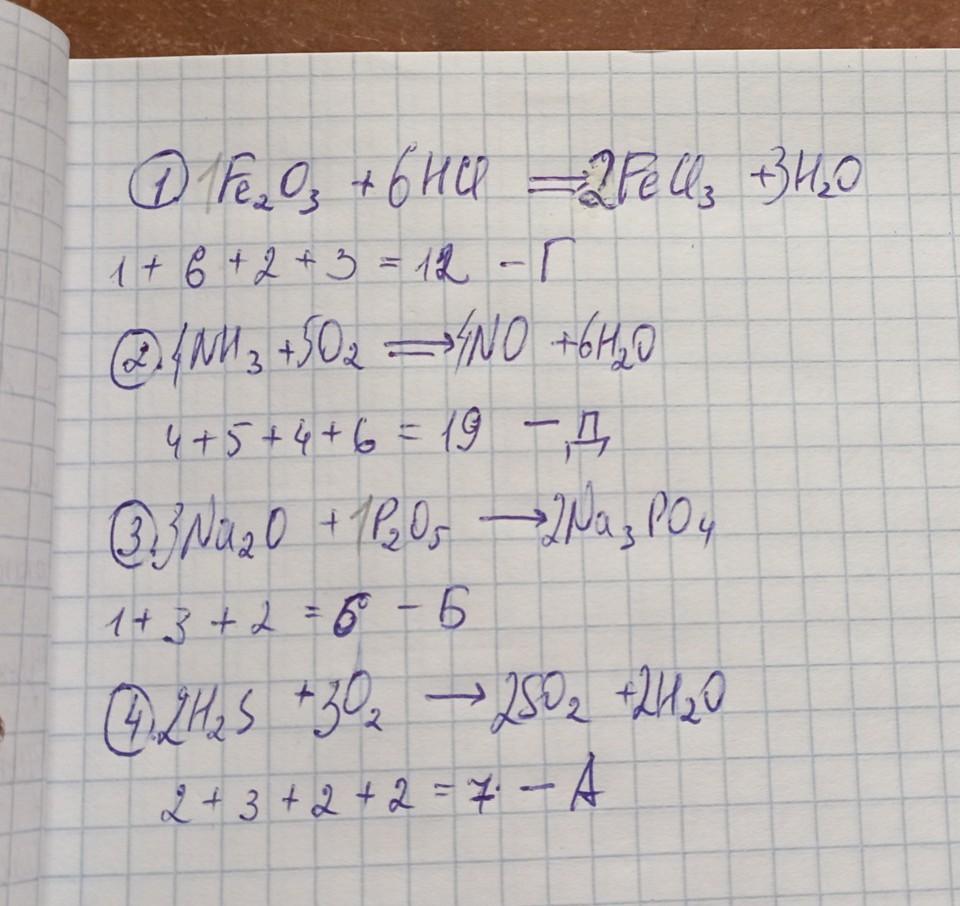 ① 1Fe₂O₃ + 6HCl ⟹ 2FeCl₃ + 3H₂O
1 + 6 + 2 + 3 = 12 – Г
②. 4NH₃ + 5O₂ ⟹ 4NO + 6H₂O
4 + 5 + 4 + 6 = 19 – Д
③. 3Na₂O + 1P₂O₅ → 2Na₃PO₄
1 + 3 + 2 = 6 – Б
④. 2H₂S + 3O₂ → 2SO₂ + 2H₂O
2 + 3 + 2 + 2 = 7. – А